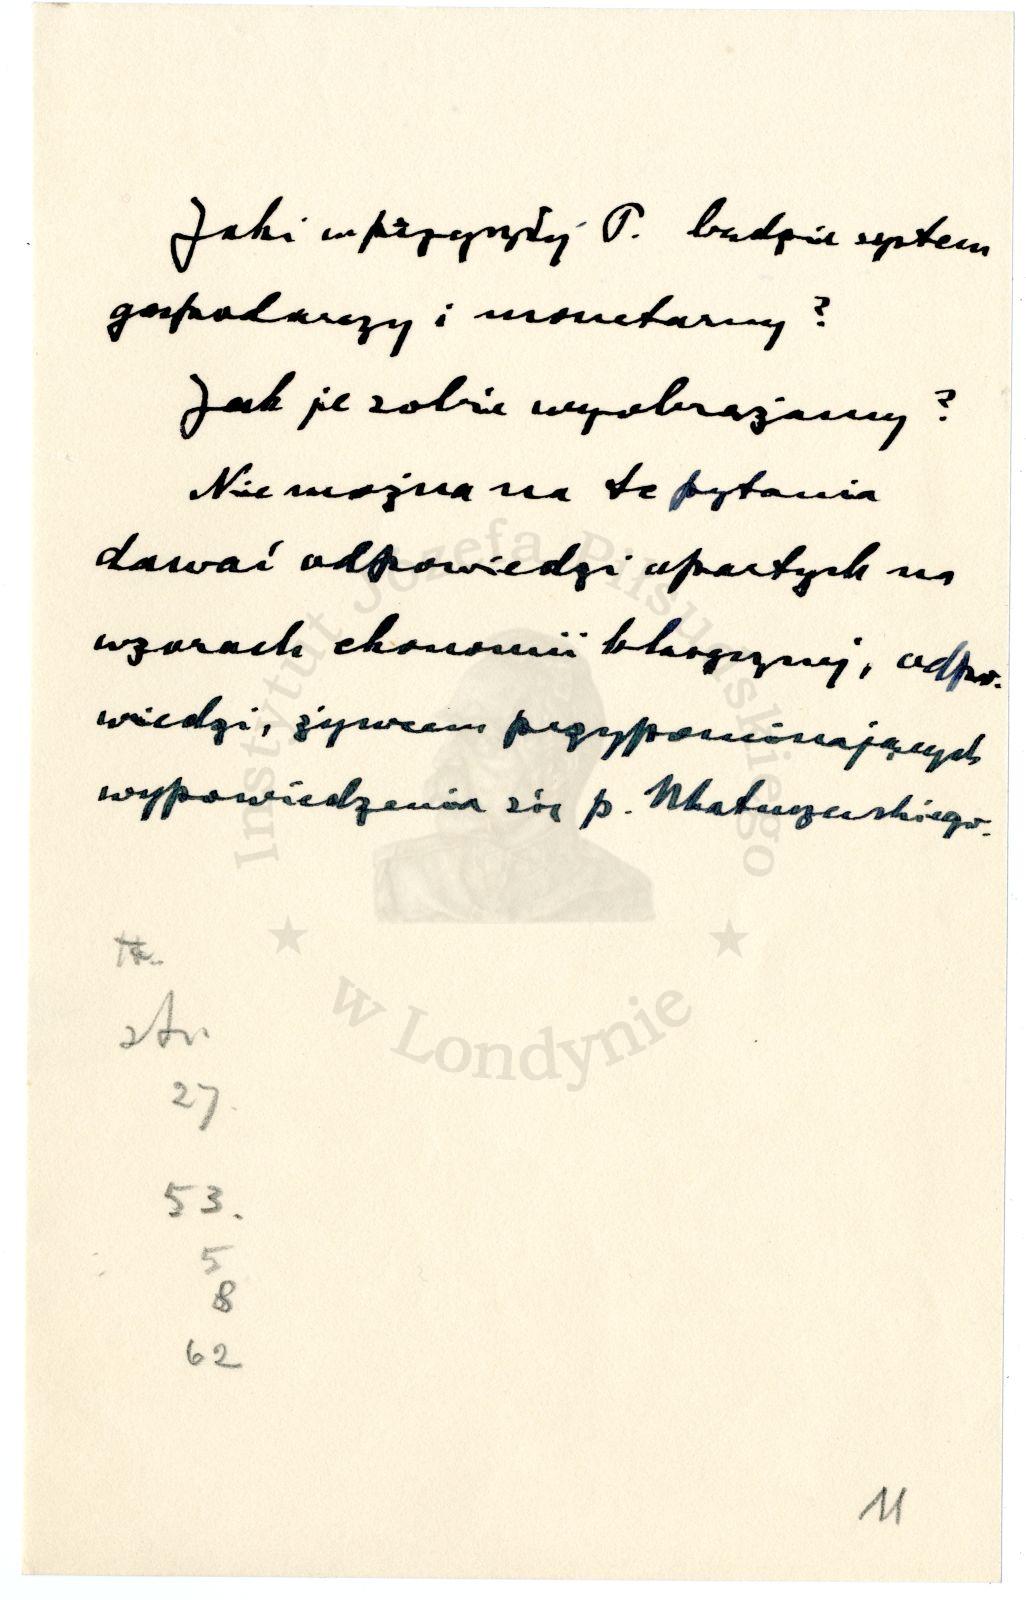 Jaki w przyszłej P. będzie system
gospodarczy i monetarny?
Jak je sobie wyobrażamy?
Nie można na te pytania
dawać odpowiedzi opartych na
wzorach ekonomii klasycznej, odpo-
wiedzi, żywcem przypominających
wypowiedzenia się p. Matuszewskiego.
Instytut Józefa Piłsudskiego
w Londynie
str.
27.
53.
5
8
62
11